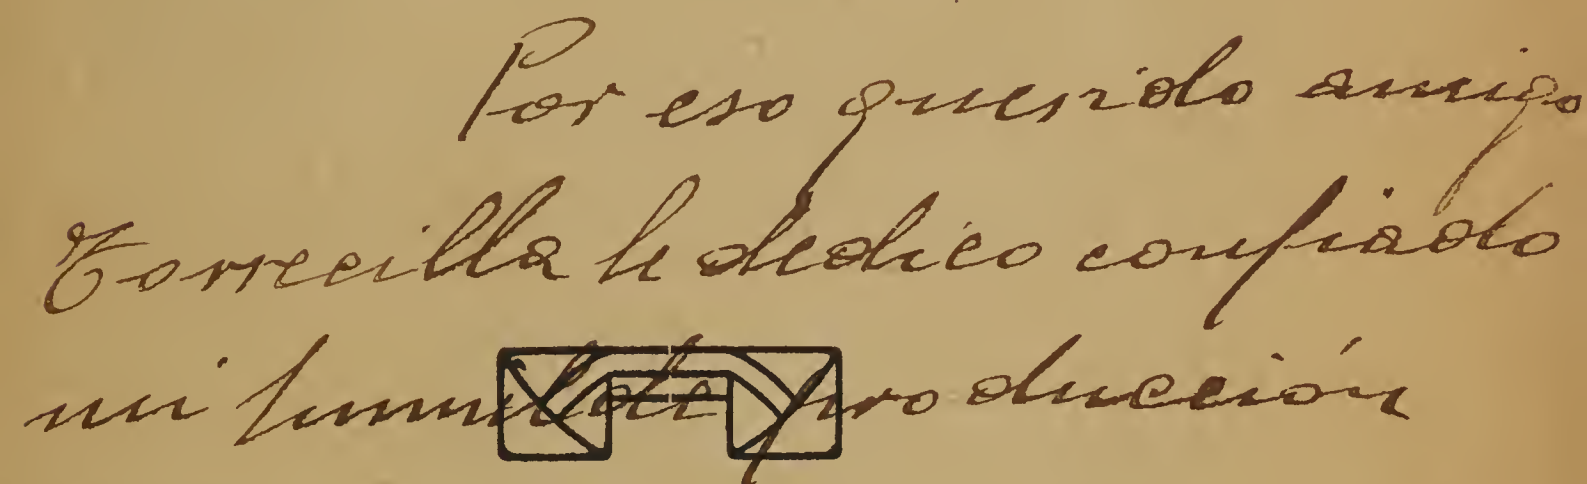 Por eso querido amigo
Torrecilla le dedico confiado
mi humilde producción